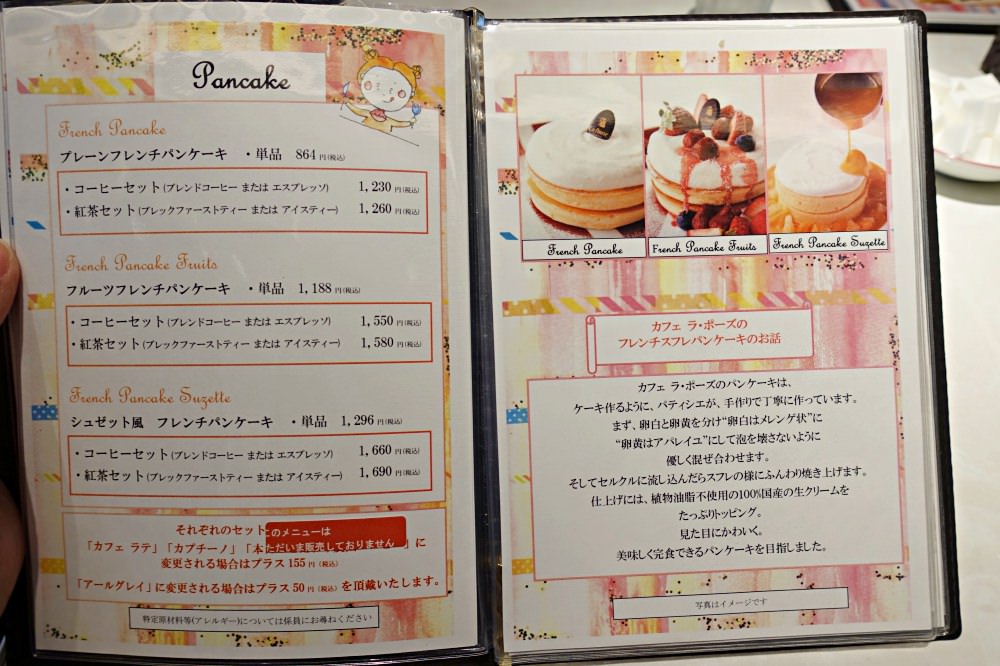 Pancake
French Pancake
プレーンフレンチパンケーキ ・単品 864円(税込)
・コーヒーセット(ブレンドコーヒー または エスプレッソ) 1,230円(税込)
・紅茶セット(ブレックファーストティー または アイスティー) 1,260円(税込)
French Pancake Fruits
フルーツフレンチパンケーキ ・単品 1,188円(税込)
・コーヒーセット(ブレンドコーヒー または エスプレッソ) 1,550円(税込)
・紅茶セット(ブレックファーストティー または アイスティー) 1,580円(税込)
French Pancake Suzette
シュゼット風 フレンチパンケーキ ・単品 1,296円(税込)
・コーヒーセット(ブレンドコーヒー または エスプレッソ) 1,660円(税込)
・紅茶セット(ブレックファーストティー または アイスティー) 1,690円(税込)
それぞれのセット
このメニューは
ただいま販売しておりません
「カフェ ラテ」「カプチーノ」「本 」に
変更される場合はプラス155円(税込)
「アールグレイ」に変更される場合はプラス50円(税込)を頂戴いたします。
特定原材料等(アレルギー)については係員にお尋ねください
French Pancake
French Pancake Fruits
French Pancake Suzette
カフェ ラ・ポーズの
フレンチスフレパンケーキのお話
カフェ ラ・ポーズのパンケーキは、
ケーキ作るように、パティシエが、手作りで丁寧に作っています。
まず、卵白と卵黄を分け“卵白はメレンゲ状”に
“卵黄はアパレイユ”にして泡を壊さないように
優しく混ぜ合わせます。
そしてセルクルに流し込んだらスフレの様にふんわり焼き上げます。
仕上げには、植物油脂不使用の100%国産の生クリームを
たっぷりトッピング。
見た目にかわいく。
美味しく完食できるパンケーキを目指しました。
写真はイメージです